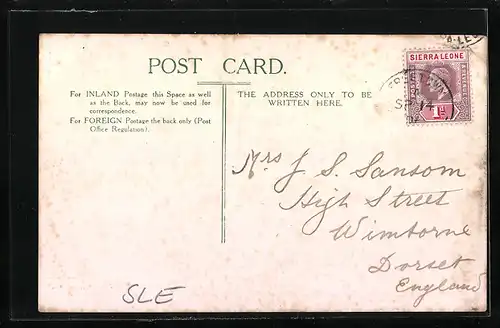 POST CARD.
For INLAND Postage this Space as well
as the Back, may now be used for
correspondence.
For FOREIGN Postage the back only (Post
Office Regulation).
THE ADDRESS ONLY TO BE
WRITTEN HERE.
SIERRA LEONE
1d
SP 14
Mrs J. S. Sansom
High Street
Wimborne
Dorset
England
SLE